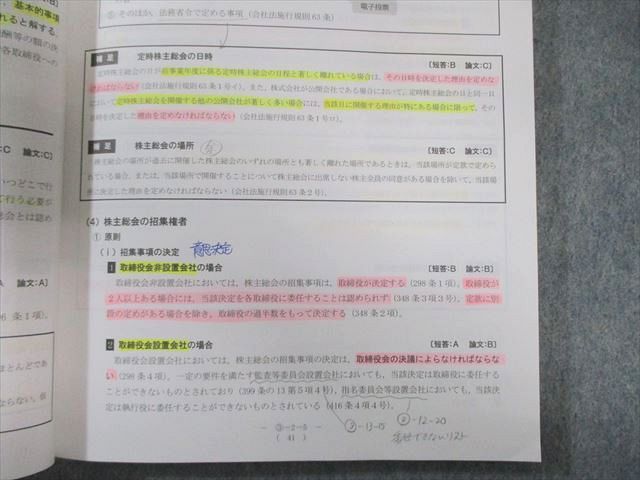 ⑤ そのほか、法務省令で定める事項（会社法施行規則63条）
電子投票
補足 定時株主総会の日時 〔短答:B 論文:C〕
定時株主総会の日が前事業年度に係る定時株主総会の日程と著しく離れている場合は、その日時を決定した理由を定めな
ければならない（会社法施行規則63条1号イ）。また、株式会社が公開会社である場合において、定時株主総会の日と同一の日
において定時株主総会を開催する他の公開会社が著しく多い場合には、当該日に開催する理由が特にある場合に限って、その
日時を決定した理由を定めなければならない（会社法施行規則63条1号ロ）。
補足 株主総会の場所 〔短答:C 論文:C〕
株主総会の場所が過去に開催した株主総会のいずれの場所とも著しく離れた場所であるときは、当該場所が定款で定めら
れている場合、または、当該場所で開催することについて株主総会に出席しない株主全員の同意がある場合を除いて、当該場
所に決定した理由を定めなければならない（会社法施行規則63条2号）。
(4) 株主総会の招集権者
① 原則
(ⅰ) 招集事項の決定 意思決定
1 取締役会非設置会社の場合 〔短答:B 論文:B〕
取締役会非設置会社においては、株主総会の招集事項は、取締役が決定する（298条1項）。取締役が
2人以上ある場合には、当該決定を各取締役に委任することは認められず（348条3項3号）、定款に別
段の定めがある場合を除き、取締役の過半数をもって決定する（348条2項）。
2 取締役会設置会社の場合 〔短答:A 論文:B〕
取締役会設置会社においては、株主総会の招集事項の決定は、取締役会の決議によらなければならな
い（298条4項）。一定の要件を満たす監査等委員会設置会社においても、当該決定は取締役に委任する
ことができないものとされており（399条の13第5項4号）、指名委員会等設置会社においても、当該決
定は執行役に委任することができないものとされている（416条4項4号）。
③-13-15
②-12-20
委任できないリスト
— ③-2-5 —
( 41 )
基本的事項
れると解する。
酬等の額の決
各取締役への
:C 論文:C〕
いつどこで行
て行う必要が
総会とは認め
A 論文:A〕
6 条1号）。
ほとんどであ
ならない。仮